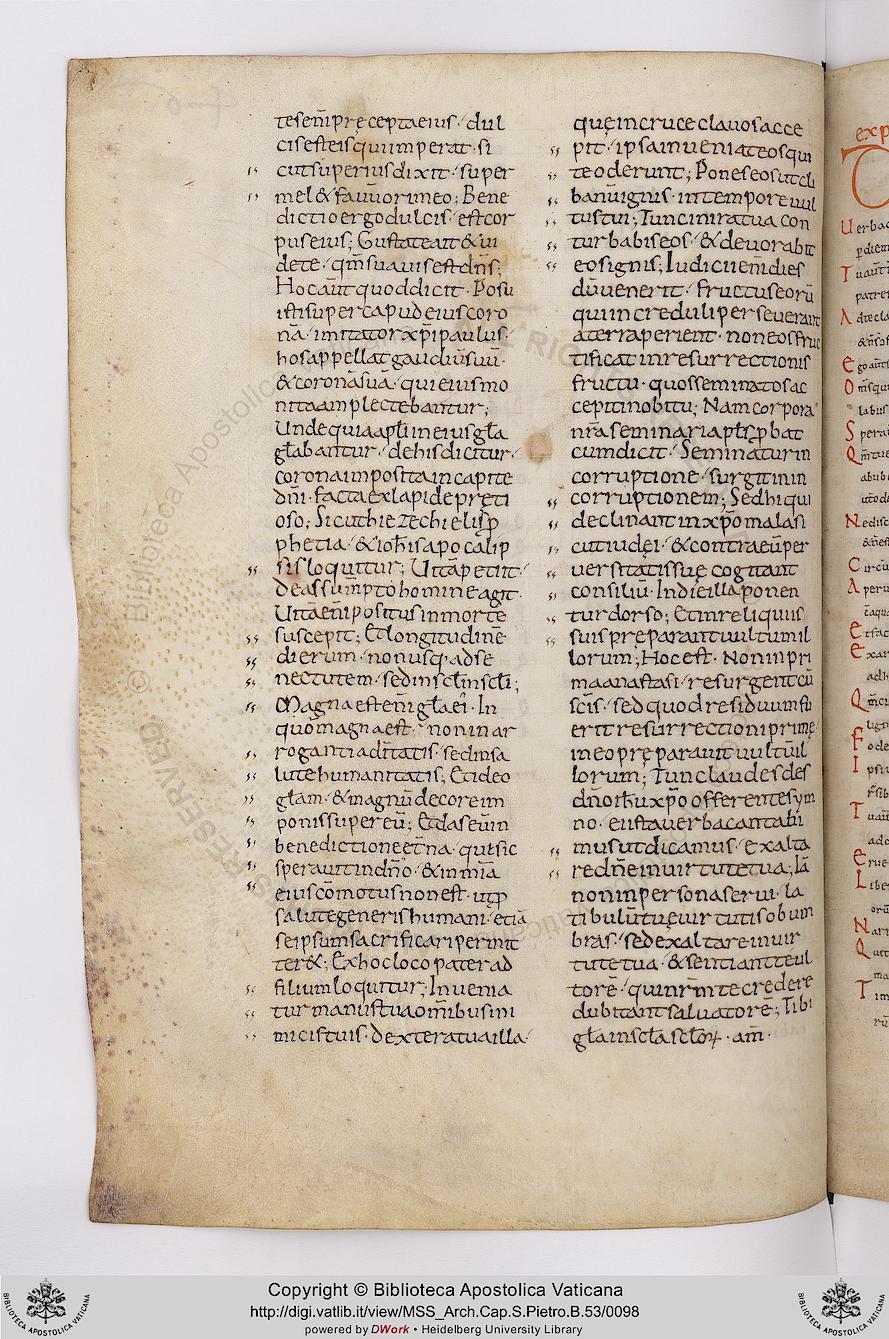 tesem̄ p̄ręceptaeius · dul
cis est eis qui imperat · si
cut superius dixit · super
mel & fauū ori meo; Bene
dictio ergo dulcis · est cor
pus eius; Gustate ait & ui
dete · qm̄ suauis est dn̄s;
Hoc aūt quod dicit · Posu
isti super capud eius coro
nā · imitator xp̄i paulus ·
hos appellat gaudiū suū ·
& coronā suā · qui eius mo
nita amplectebantur;
Unde quia apl̄i in eius gl̄a
gl̄abantur · de his dicitur ·
corona imposita in capite
dn̄i · facta ex lapide preti
oso; Sicut hiezechielis p̄
phetia · & ioh̄is apocalip
sis loquitur; Uitā petiit ·
de assumpto homine agit ·
Uitā eni positus in morte
suscepit; Et longitudinē
dierum · non usq· ad se
nectutem · sed in sc̄lm̄ sc̄li;
Magna est eni gl̄a ei · In
quo m̄ magna est · non in ar
roganti aditatis · sed in sa
lute humanitatis; Et ideo
gl̄am · & magnū decorem in
ponis super eū; Et das eū in
benedictione et̄na · qui sic
sperauit in dn̄o · & in mīa
eius cōmotus non est · ut p̄
salute generis humani · etiā
se ipsum sacrificari permit
ter&; Ex hoc loco pater ad
filium loquitur; Inuenia
tur manus tua omībus ini
micis tuis · dextera tua illa
quę in cruce clauos acce
pit · ipsa inueniat eos qui
te oderunt; Pones eos ut cli
banū ignis · in tempore uul
tus tui; Tunc in ira tua con
turbabis eos · & deuorabit
eos ignis; Iudicii eni dies
dū uenerit · fructus eorū
qui increduli perseuerant
a terra perient · non eos fruc
tificat in resurrectionis
fructu · quos seminatos ac
cepit in obitu; Nam corpora
nr̄a seminari apl̄s p̄bat
cum dicit · Seminatur in
corruptione · surgit in in
corruptionem; Sed hi qui
declinant in xp̄o mala si
cut iudęi · & contra eū per
uersitatis suę cogitant
consiliū · In die illa ponen
tur dorso; Et in reliquiis
suis preparant uultum il
lorum; Hoc est · Non in pri
ma anastasi · resurgent cū
sc̄is · sed quod residuum fu
erit resurrectioni primę
in eo pręparauit uultū il
lorum; Tunc laudes des
dn̄o ih̄u xp̄o offerentes ym
no · ei ista uerba cantabi
mus ut dicamus · Exalta
re dn̄e in uirtute tua; Iā
non in persona serui · la
tibulū tuę uirtutis obum
bras · sed exaltare in uir
tute tua · & sentiant te ul
torē · qui nr̄m te credere
dubitant saluatorē; Tibi
gl̄a in sc̄la sc̄lorum · am̄ ·
Copyright © Biblioteca Apostolica Vaticana
http://digi.vatlib.it/view/MSS_Arch.Cap.S.Pietro.B.53/0098
powered by DWork • Heidelberg University Library